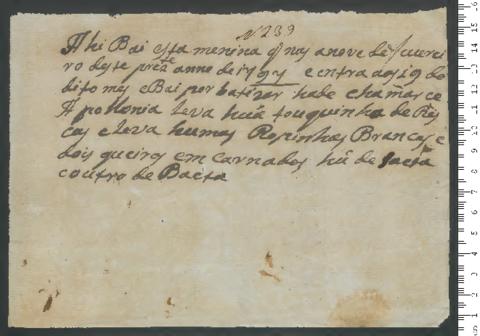 N 239
Ahi Bai esta menina q̃ nas anove de Fuverei
ro deste prezte anno de 1797 e entra aos 19 do
dito mes e Bai por batizar hade chamarce
Apolonia leva huã touquinha de Ris
cas e leva humas Ropinhas Brancas e
dois queiros em carnados hũ de saeta
e outro de Baeta